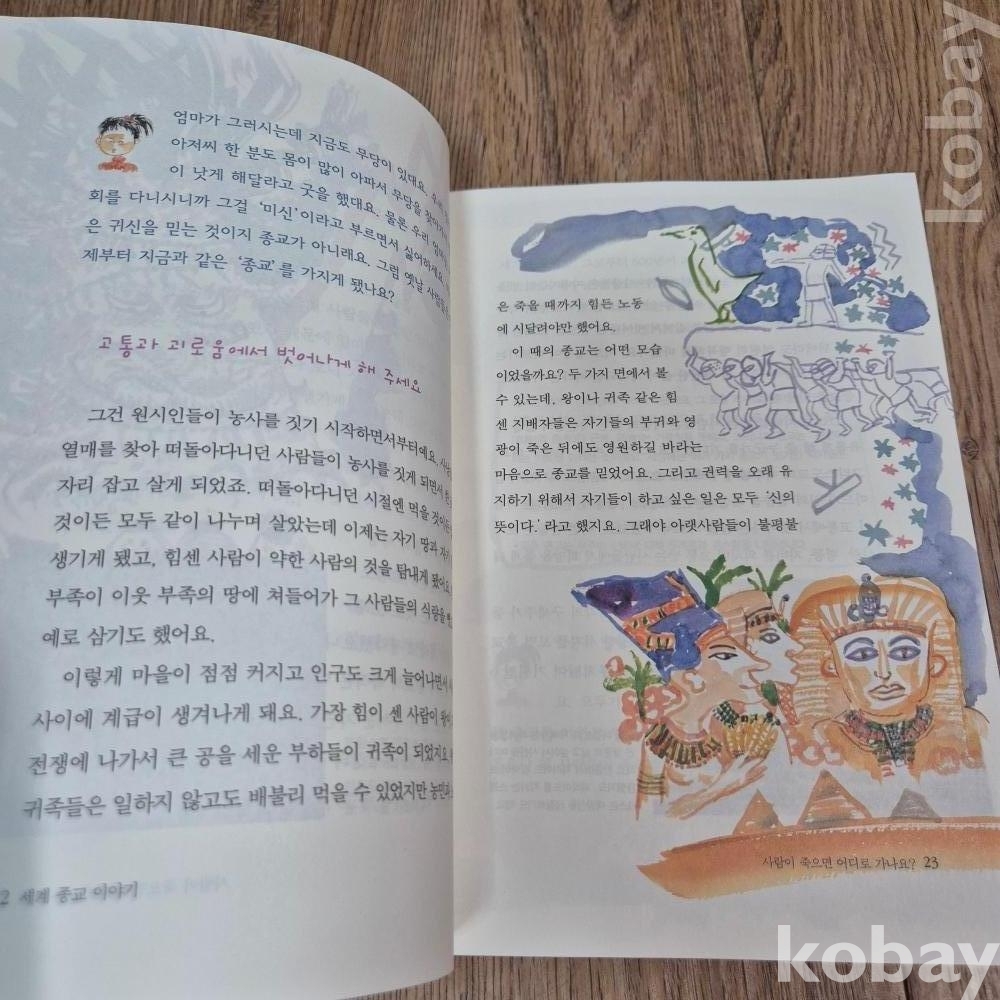 엄마가 그러시는데 지금도 무당이 있대요.
아저씨 한 분도 몸이 많이 아파서 무당을
이 낫게 해달라고 굿을 했대요. 물론 우리
회를 다니시니까 그걸 '미신'이라고 부르면서 싫어하세요.
은 귀신을 믿는 것이지 종교가 아니래요. 그럼 옛날
제부터 지금과 같은 '종교'를 가지게 됐나요?
고통과 괴로움에서 벗어나게 해 주세요
그건 원시인들이 농사를 짓기 시작하면서부터예요.
열매를 찾아 떠돌아다니던 사람들이 농사를 짓게 되면서
자리 잡고 살게 되었죠. 떠돌아다니던 시절엔 먹을
것이든 모두 같이 나누며 살았는데 이제는 자기 땅과
생기게 됐고, 힘센 사람이 약한 사람의 것을 탐내게 됐어요
부족이 이웃 부족의 땅에 쳐들어가 그 사람들의 식량을
예로 삼기도 했어요.
이렇게 마을이 점점 커지고 인구도 크게 늘어나면서
사이에 계급이 생겨나게 돼요. 가장 힘이 센 사람이
전쟁에 나가서 큰 공을 세운 부하들이 귀족이 되었지요
귀족들은 일하지 않고도 배불리 먹을 수 있었지만
2 세계 종교 이야기
은 죽을 때까지 힘든 노동
에 시달려야만 했어요.
이 때의 종교는 어떤 모습
이었을까요? 두 가지 면에서 볼
수 있는데, 왕이나 귀족 같은 힘
센 지배자들은 자기들의 부귀와 영
광이 죽은 뒤에도 영원하길 바라는
마음으로 종교를 믿었어요. 그리고 권력을 오래 유
지하기 위해서 자기들이 하고 싶은 일은 모두 '신의
뜻이다.'라고 했지요. 그래야 아랫사람들이 불평불
사람이 죽으면 어디로 가나요? 23
kobay
kobay